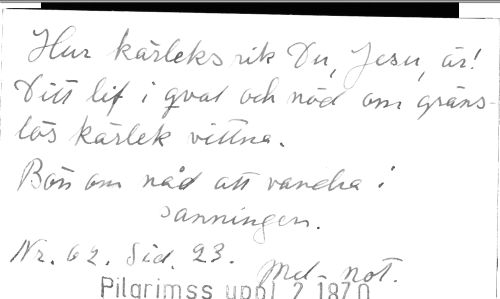 Hur kärleksrik Du, Jesu, är!
Ditt lif i qval och nöd om gräns-
lös kärlek vittna.
Bön om nåd att vandra i
sanningen.
Nr. 62. Sid. 23.
med not.
Pilgrimss uppl 2 1870